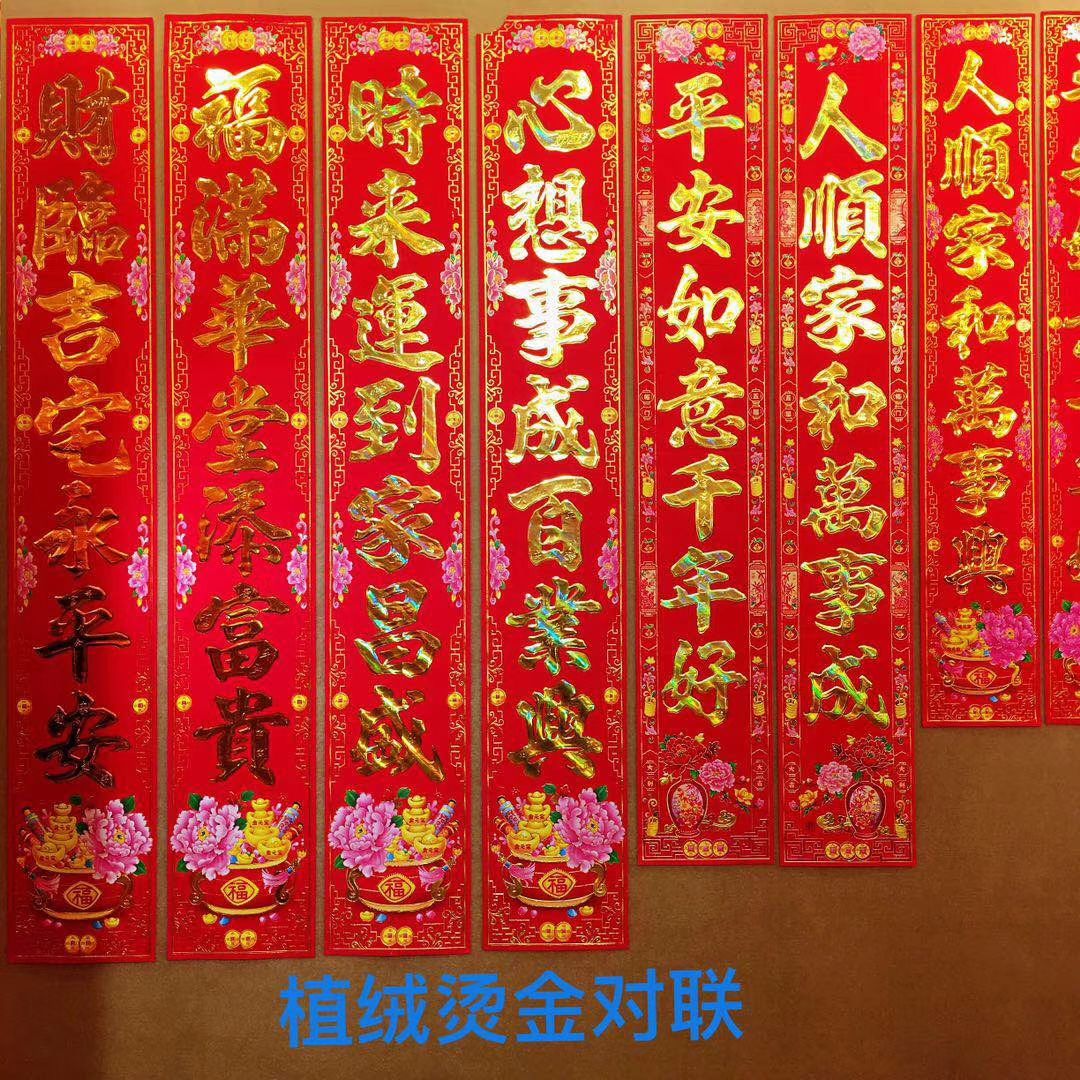 財臨吉宅永平安
福滿華堂添富貴
時来運到家昌盛
心想事成百業興
平安如意千年好
人順家和萬事成
人順家和萬事興
福
福
福
福
植绒烫金对联